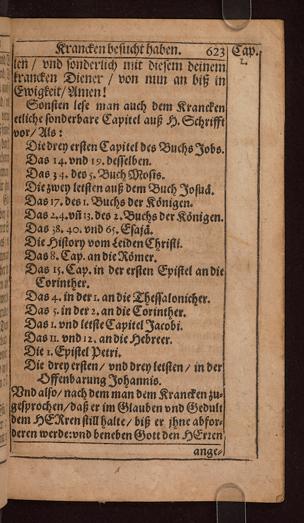 Krancken besucht haben. 623
Cap.
len / vnd sonderlich mit diesem deinem
krancken Diener / von nun an biß in
Ewigkeit / Amen!
Sonsten lese man auch dem Krancken
etliche sonderbare Capitel auß H. Schrifft
vor / Als:
Die drey ersten Capitel des Buchs Jobs.
Das 14. vnd 19. desselben.
Das 34. des 5. Buch Mosis.
Die zwey letsten auß dem Buch Josuä.
Das 17. des 1. Buchs der Königen.
Das 2. 4. vñ 13. des 2. Buchs der Königen.
Das 38. 40. vnd 65. Esajä.
Die History vom Leiden Christi.
Das 8. Cap. an die Römer.
Das 15. Cap. in der ersten Epistel an die
Corinther.
Das 4. in der 1. an die Thessalonicher.
Das 5. in der 2. an die Corinther.
Das 1. vnd letste Capitel Jacobi.
Das 11. vnd 12. an die Hebreer.
Die 1. Epistel Petri.
Die drey ersten / vnd drey letsten / in der
Offenbarung Johannis.
Vnd also / nach dem man dem Krancken zu-
gesprochen / daß er im Glauben vnd Gedult
dem HERren still halte / biß er jhne abfor-
deren werde: vnd beneben Gott den HErren
ange-